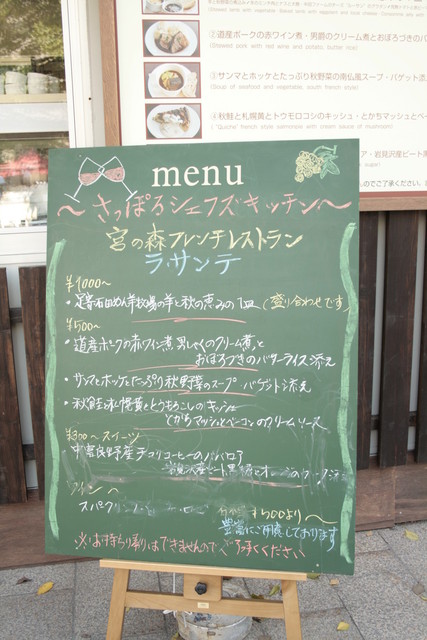 ②道産ポークの赤ワイン煮・男爵のクリーム煮とおぼろづきのバ
(Stewed pork with red wine and potato, butter rice)
③サンマとホッケとたっぷり秋野菜の南仏風スープ・バゲット添え
(Soup of seafood and vegetable, south french style)
④秋鮭と札幌黄とトウモロコシのキッシュ・とかちマッシュとベー
menu
〜さっぽろシェフズキッチン〜
宮の森フレンチレストラン
ラ・サンテ
¥1000〜
・足寄石田めん羊牧場の羊と秋の恵みの1皿(盛り合わせです)
¥500〜
・道産ポークの赤ワイン煮 男しゃくのクリーム煮と
おぼろづきのバターライス添え
・サンマとホッケとたっぷり秋野菜のスープ バゲット添え
・秋鮭と札幌黄ととうもろこしのキッシュ
とかちマッシュとベーコンのクリームソース
¥300〜スイーツ
中富良野産チコリコーヒーのババロア
ワイン〜
スパークリング
¥500より〜
豊富にご用意しております
※お持ち帰りはできませんのでご了承ください